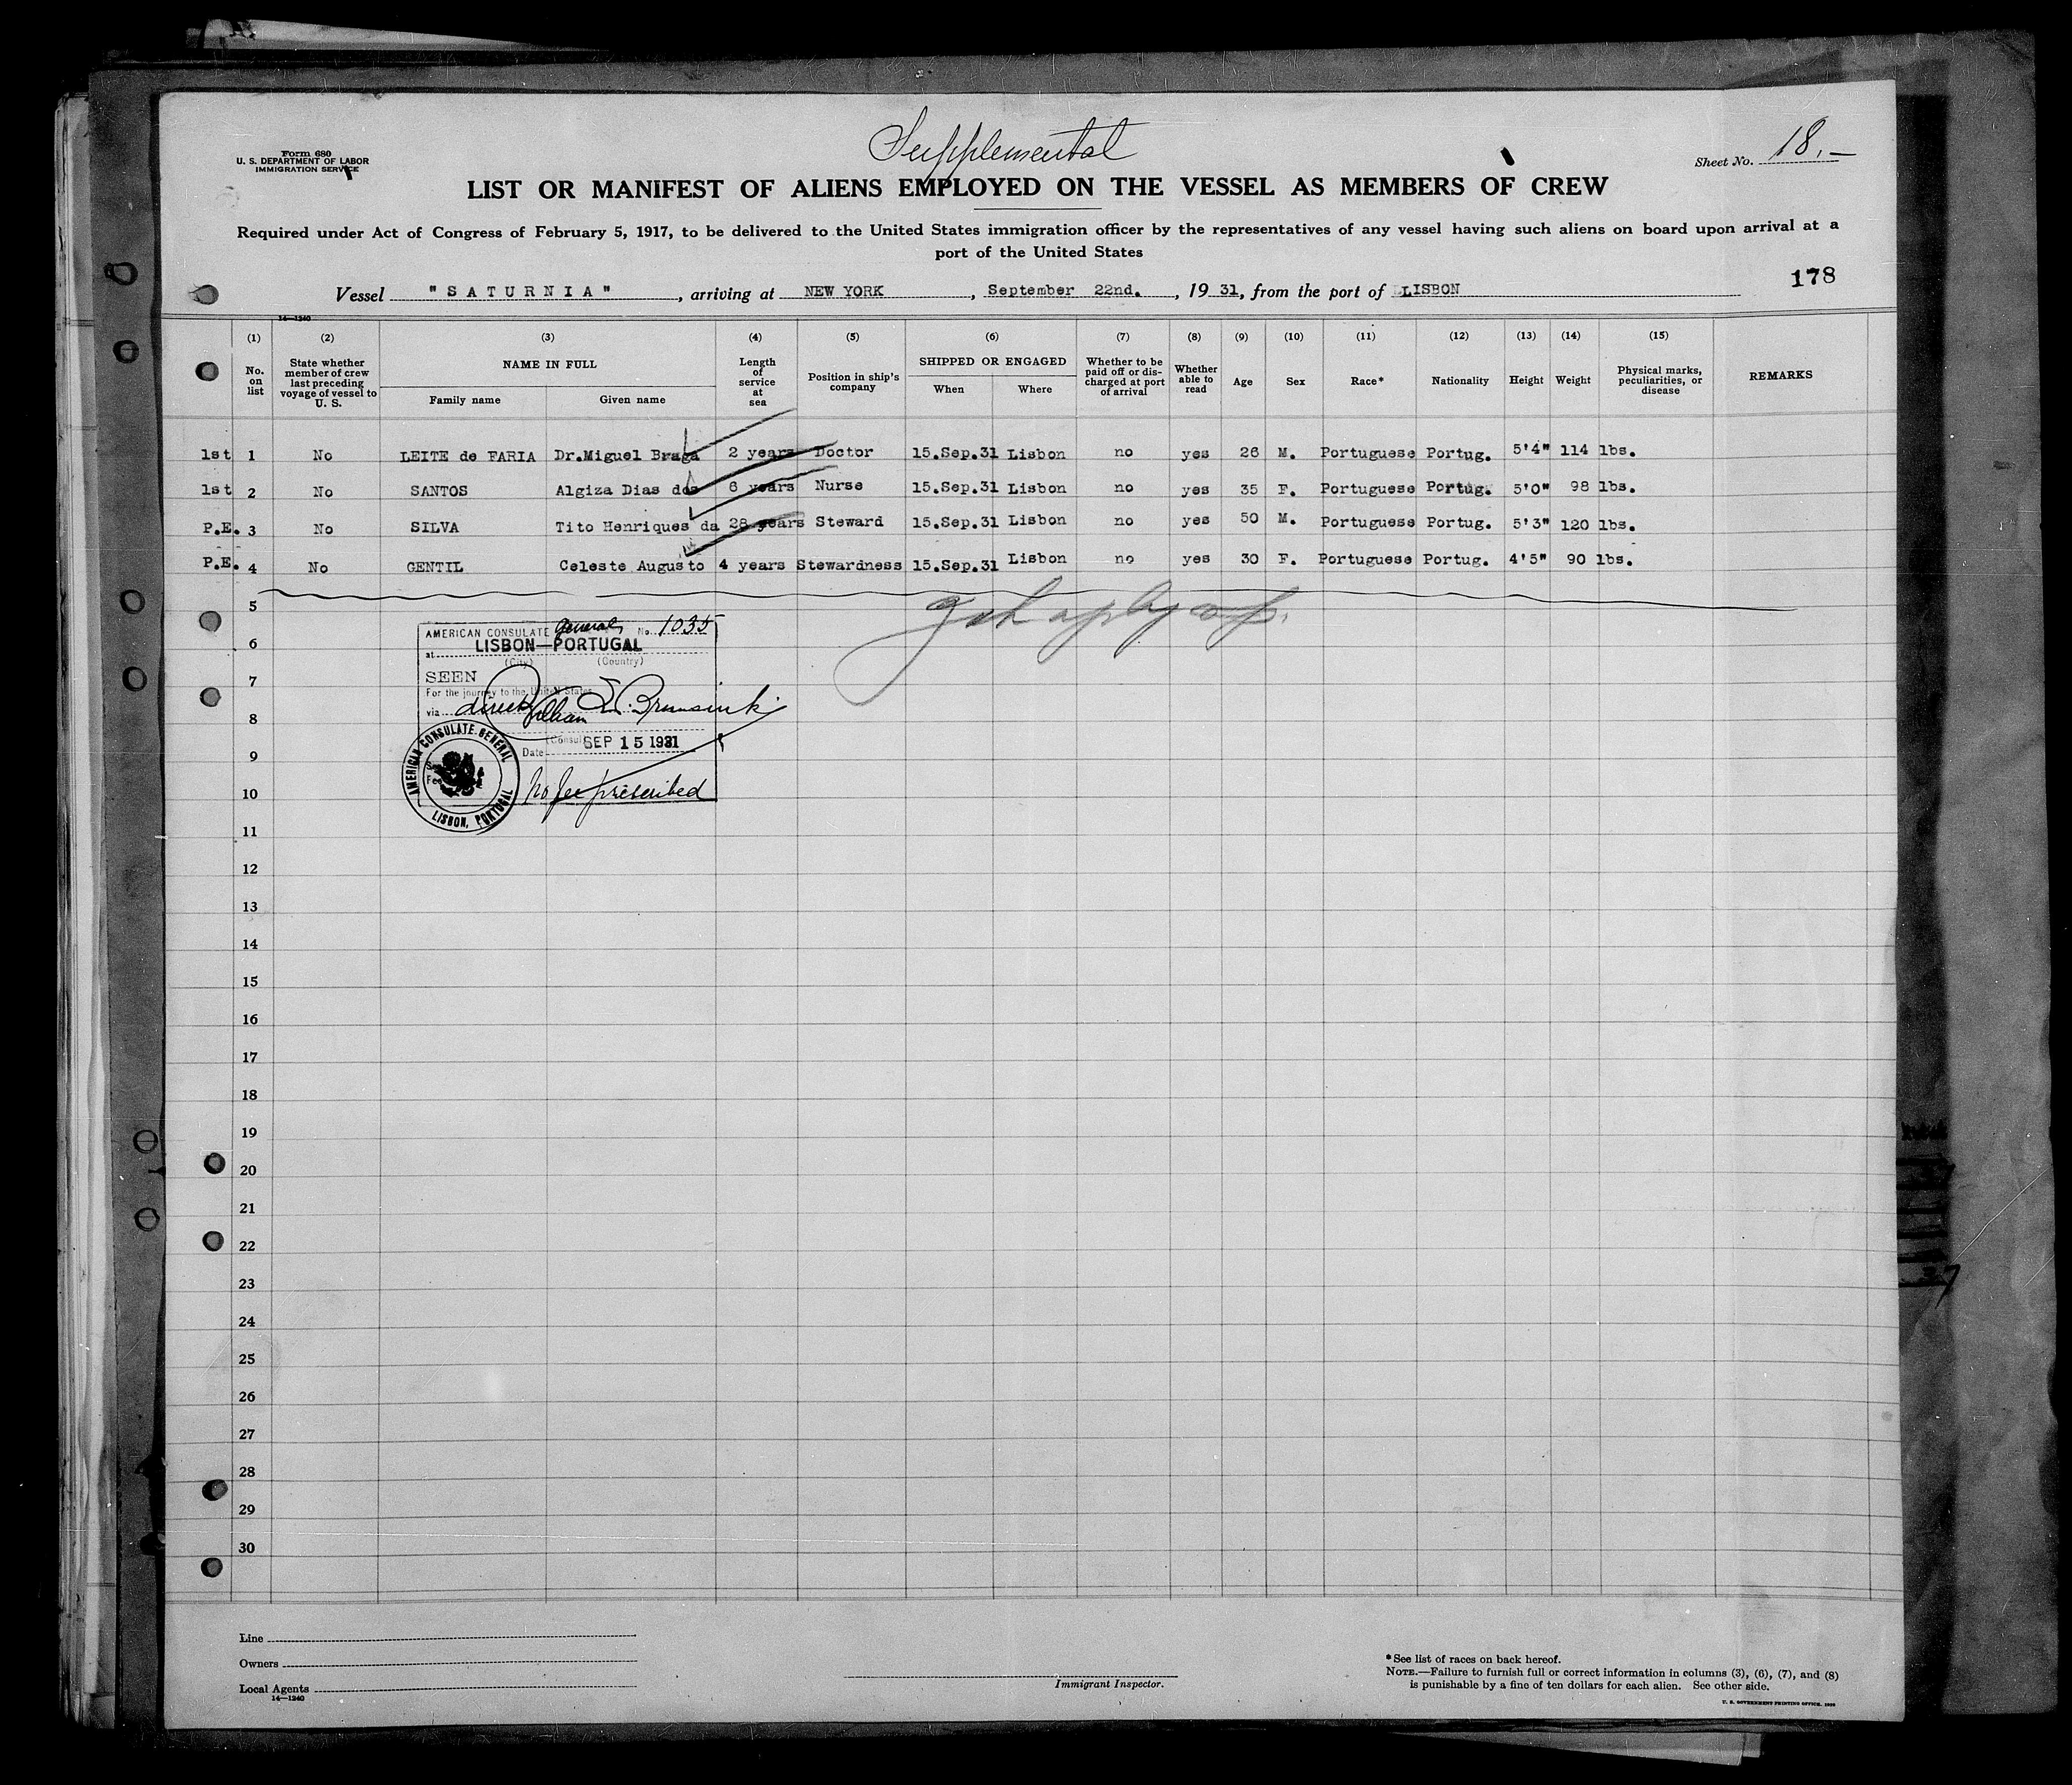 Supplemental
Form 680
U. S. DEPARTMENT OF LABOR
IMMIGRATION SERVICE
Sheet No. 18.—
LIST OR MANIFEST OF ALIENS EMPLOYED ON THE VESSEL AS MEMBERS OF CREW
Required under Act of Congress of February 5, 1917, to be delivered to the United States immigration officer by the representatives of any vessel having such aliens on board upon arrival at a
port of the United States
178
Vessel "SATURNIA", arriving at NEW YORK, September 22nd., 1931, from the port of LISBON
14—1240
(1) (2) (3) (4) (5) (6) (7) (8) (9) (10) (11) (12) (13) (14) (15)
No. on list State whether member of crew last preceding voyage of vessel to U. S. NAME IN FULL Family name Given name Length of service at sea Position in ship's company SHIPPED OR ENGAGED When Where Whether to be paid off or discharged at port of arrival Whether able to read Age Sex Race* Nationality Height Weight Physical marks, peculiarities, or disease REMARKS
1st 1 No LEITE de FARIA Dr.Miguel Braga 2 years Doctor 15.Sep.31 Lisbon no yes 26 M. Portuguese Portug. 5'4" 114 lbs.
1st 2 No SANTOS Algiza Dias dos 6 years Nurse 15.Sep.31 Lisbon no yes 35 F. Portuguese Portug. 5'0" 98 lbs.
P.E. 3 No SILVA Tito Henriques da 28 years Steward 15.Sep.31 Lisbon no yes 50 M. Portuguese Portug. 5'3" 120 lbs.
P.E. 4 No GENTIL Celeste Augusto 4 years Stewardness 15.Sep.31 Lisbon no yes 30 F. Portuguese Portug. 4'5" 90 lbs.
5
6
7
8
9
10
11
12
13
14
15
16
17
18
19
20
21
22
23
24
25
26
27
28
29
30
AMERICAN CONSULATE General No. 1035
at LISBON—PORTUGAL
(City) (Country)
SEEN
For the journey to the United States
via direct
William E.
(Consul
Date SEP 15 1931
No fee prescribed
AMERICAN CONSULATE GENERAL
LISBON, PORTUGAL
Line
Owners
Local Agents
14—1240
Immigrant Inspector.
*See list of races on back hereof.
NOTE.—Failure to furnish full or correct information in columns (3), (6), (7), and (8)
is punishable by a fine of ten dollars for each alien. See other side.